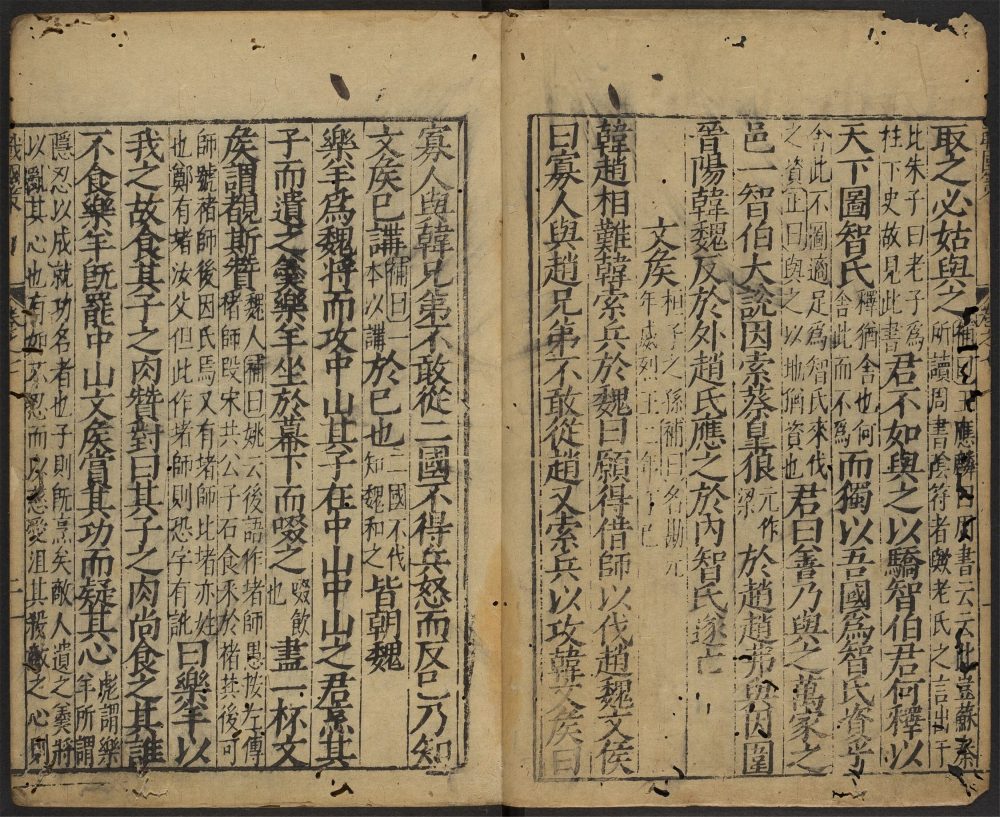 取之必姑與之補曰王應麟曰周書云云此豈蘇秦所讀周書陰符者歟老氏之言出于
比朱子曰老子為柱下史故見此書君不如與之以驕智伯君何釋以
天下圖智氏釋猶舍也何舍此而不為而獨以吾國為智氏資乎
舍此不圖適足為智氏來伐之資正曰與之以地猶資也君曰善乃與之萬家之
邑一智伯大說因索蔡皇狼元作梁於趙趙弗與因圍
晉陽韓魏反於外趙氏應之於內智氏遂亡
文侯桓子之孫補曰名勘元年威烈王二年丁巳
韓趙相難韓索兵於魏曰願得借師以伐趙魏文侯
曰寡人與趙兄弟不敢從趙又索兵以攻韓文侯曰
寡人與韓兄弟不敢從二國不得兵怒而反已乃知
文侯已講補曰一本以講於已也二國不伐知魏和之皆朝魏
樂羊為魏將而攻中山其子在中山中山之君烹其
子而遺之羹樂羊坐於幕下而啜之啜飲也盡一杯文
侯謂覩斯贊魏人補曰姚云後語作堵師愚按左傳褚師段宋共公子石食采於褚其後可
師號褚師後因氏焉又有堵師比堵亦姓也鄭有堵汝父但此作堵師則恐字有訛曰樂羊以
我之故食其子之肉贊對曰其子之肉尚食之其誰
不食樂羊既罷中山文侯賞其功而疑其心彪謂樂羊所謂
隱忍以成就功名者也子則既烹矣敵人遺之羹將以亂其心也有如不忍而以慈愛沮其殺敵之心則